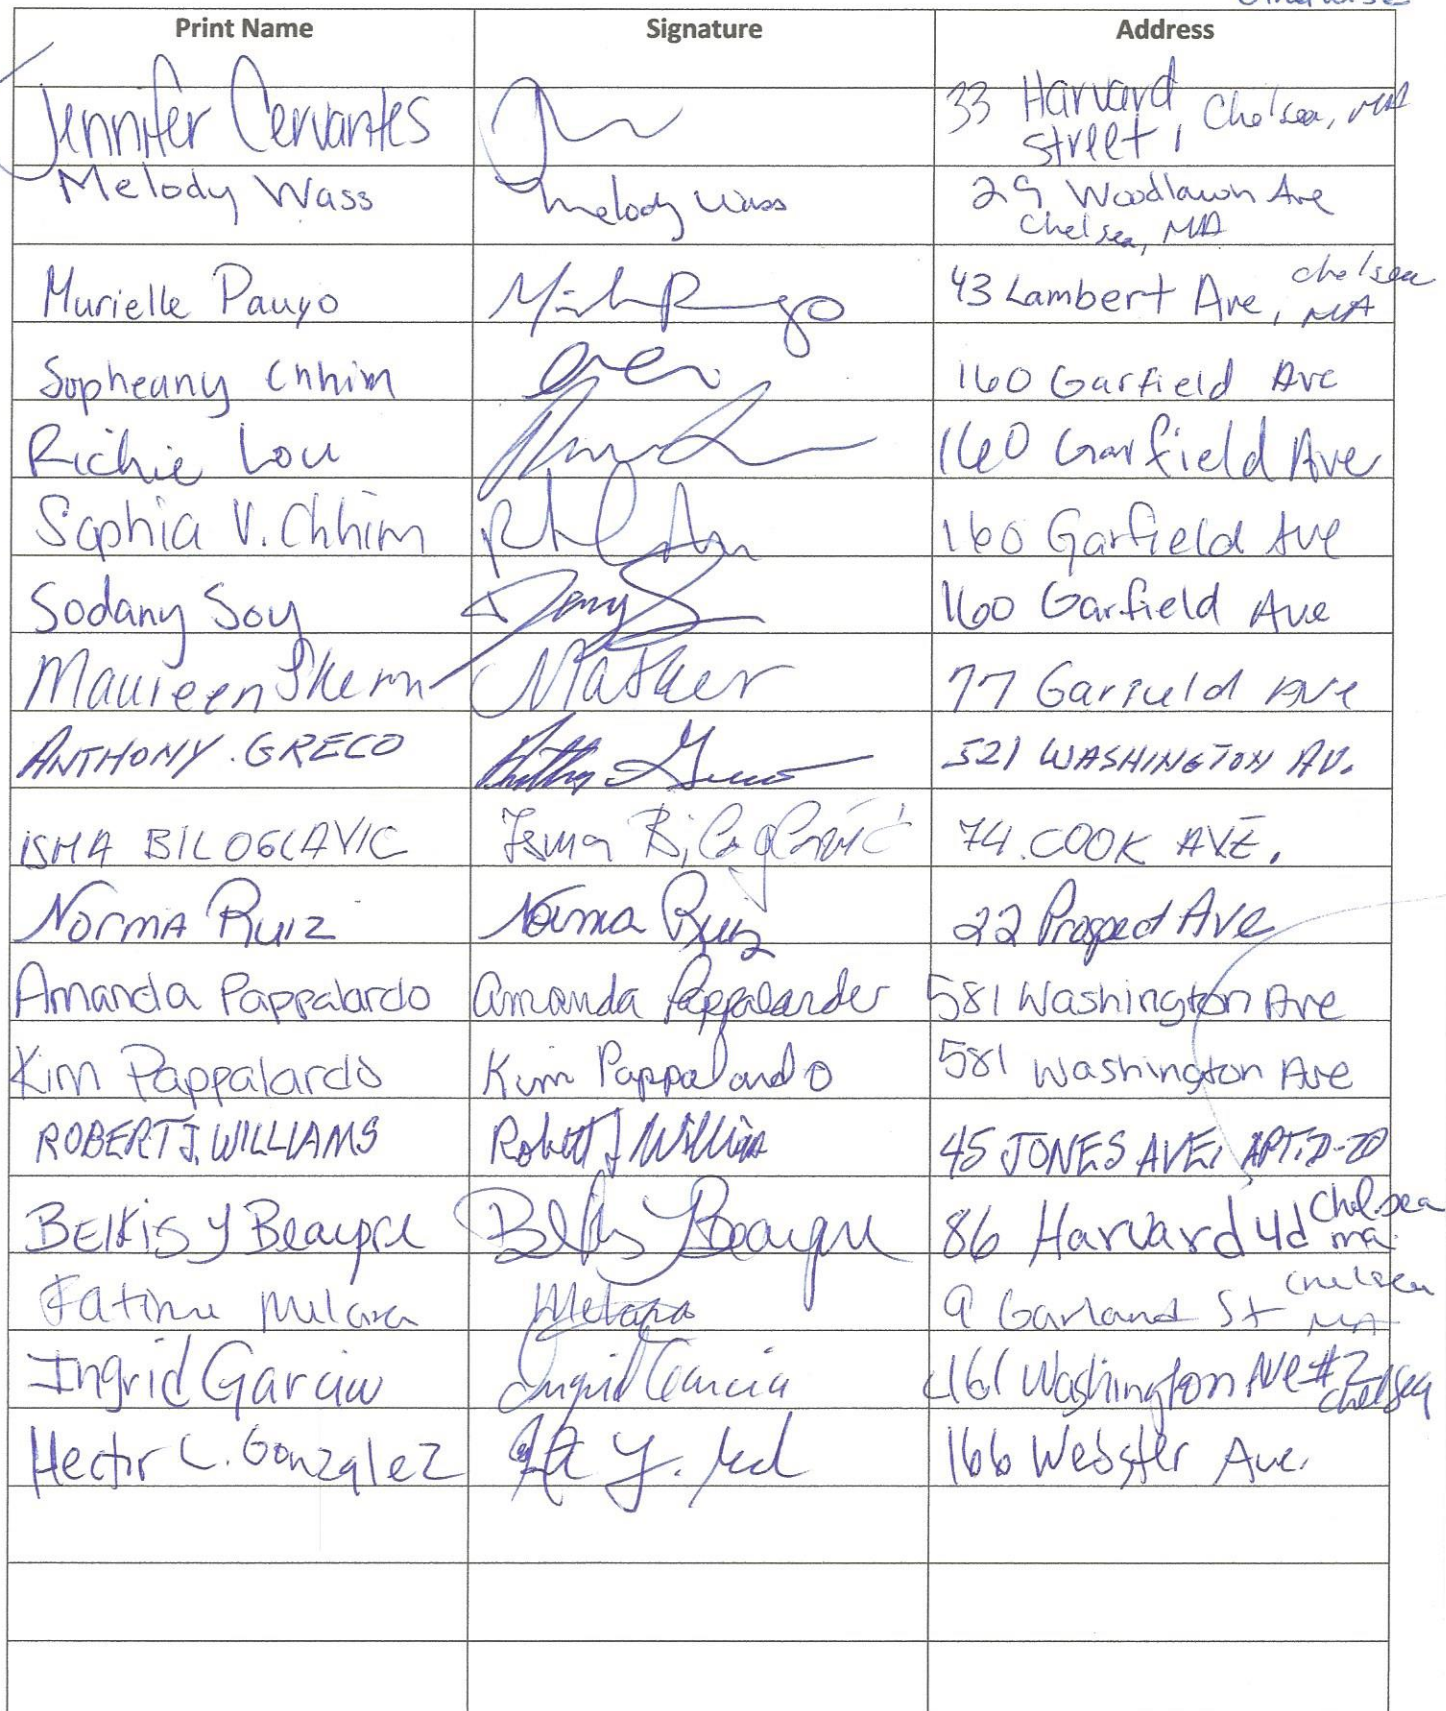 Print Name Signature Address
Jennifer Cervantes 33 Harvard Street, Chelsea, MA
Melody Wass Melody Wass 29 Woodlawn Ave Chelsea, MA
Murielle Pauyo 43 Lambert Ave, Chelsea MA
Sopheany Chhim 160 Garfield Ave
Richie Lou 160 Garfield Ave
Sophia V. Chhim 160 Garfield Ave
Sodany Soy 160 Garfield Ave
Maureen 77 Garfield Ave
ANTHONY. GRECO Anthony Greco 521 WASHINGTON AV.
ISMA BILOGLAVIC Isma Biloglavić 74. COOK AVE.
Norma Ruiz Norma Ruiz 22 Prospect Ave
Amanda Pappalardo Amanda Pappalardo 581 Washington Ave
Kim Pappalardo Kim Pappalardo 581 Washington Ave
ROBERT J. WILLIAMS Robert J Williams 45 JONES AVE, APT.
BElKiS Y Beaupre Belkis Y Beaupre 86 Harvard 4d Chelsea ma.
Fatima Melara Melara 9 Garland St Chelsea MA
Ingrid Garcia Ingrid Garcia 461 Washington Ave #2 Chelsea
Hector L. Gonzalez 166 Webster Ave.